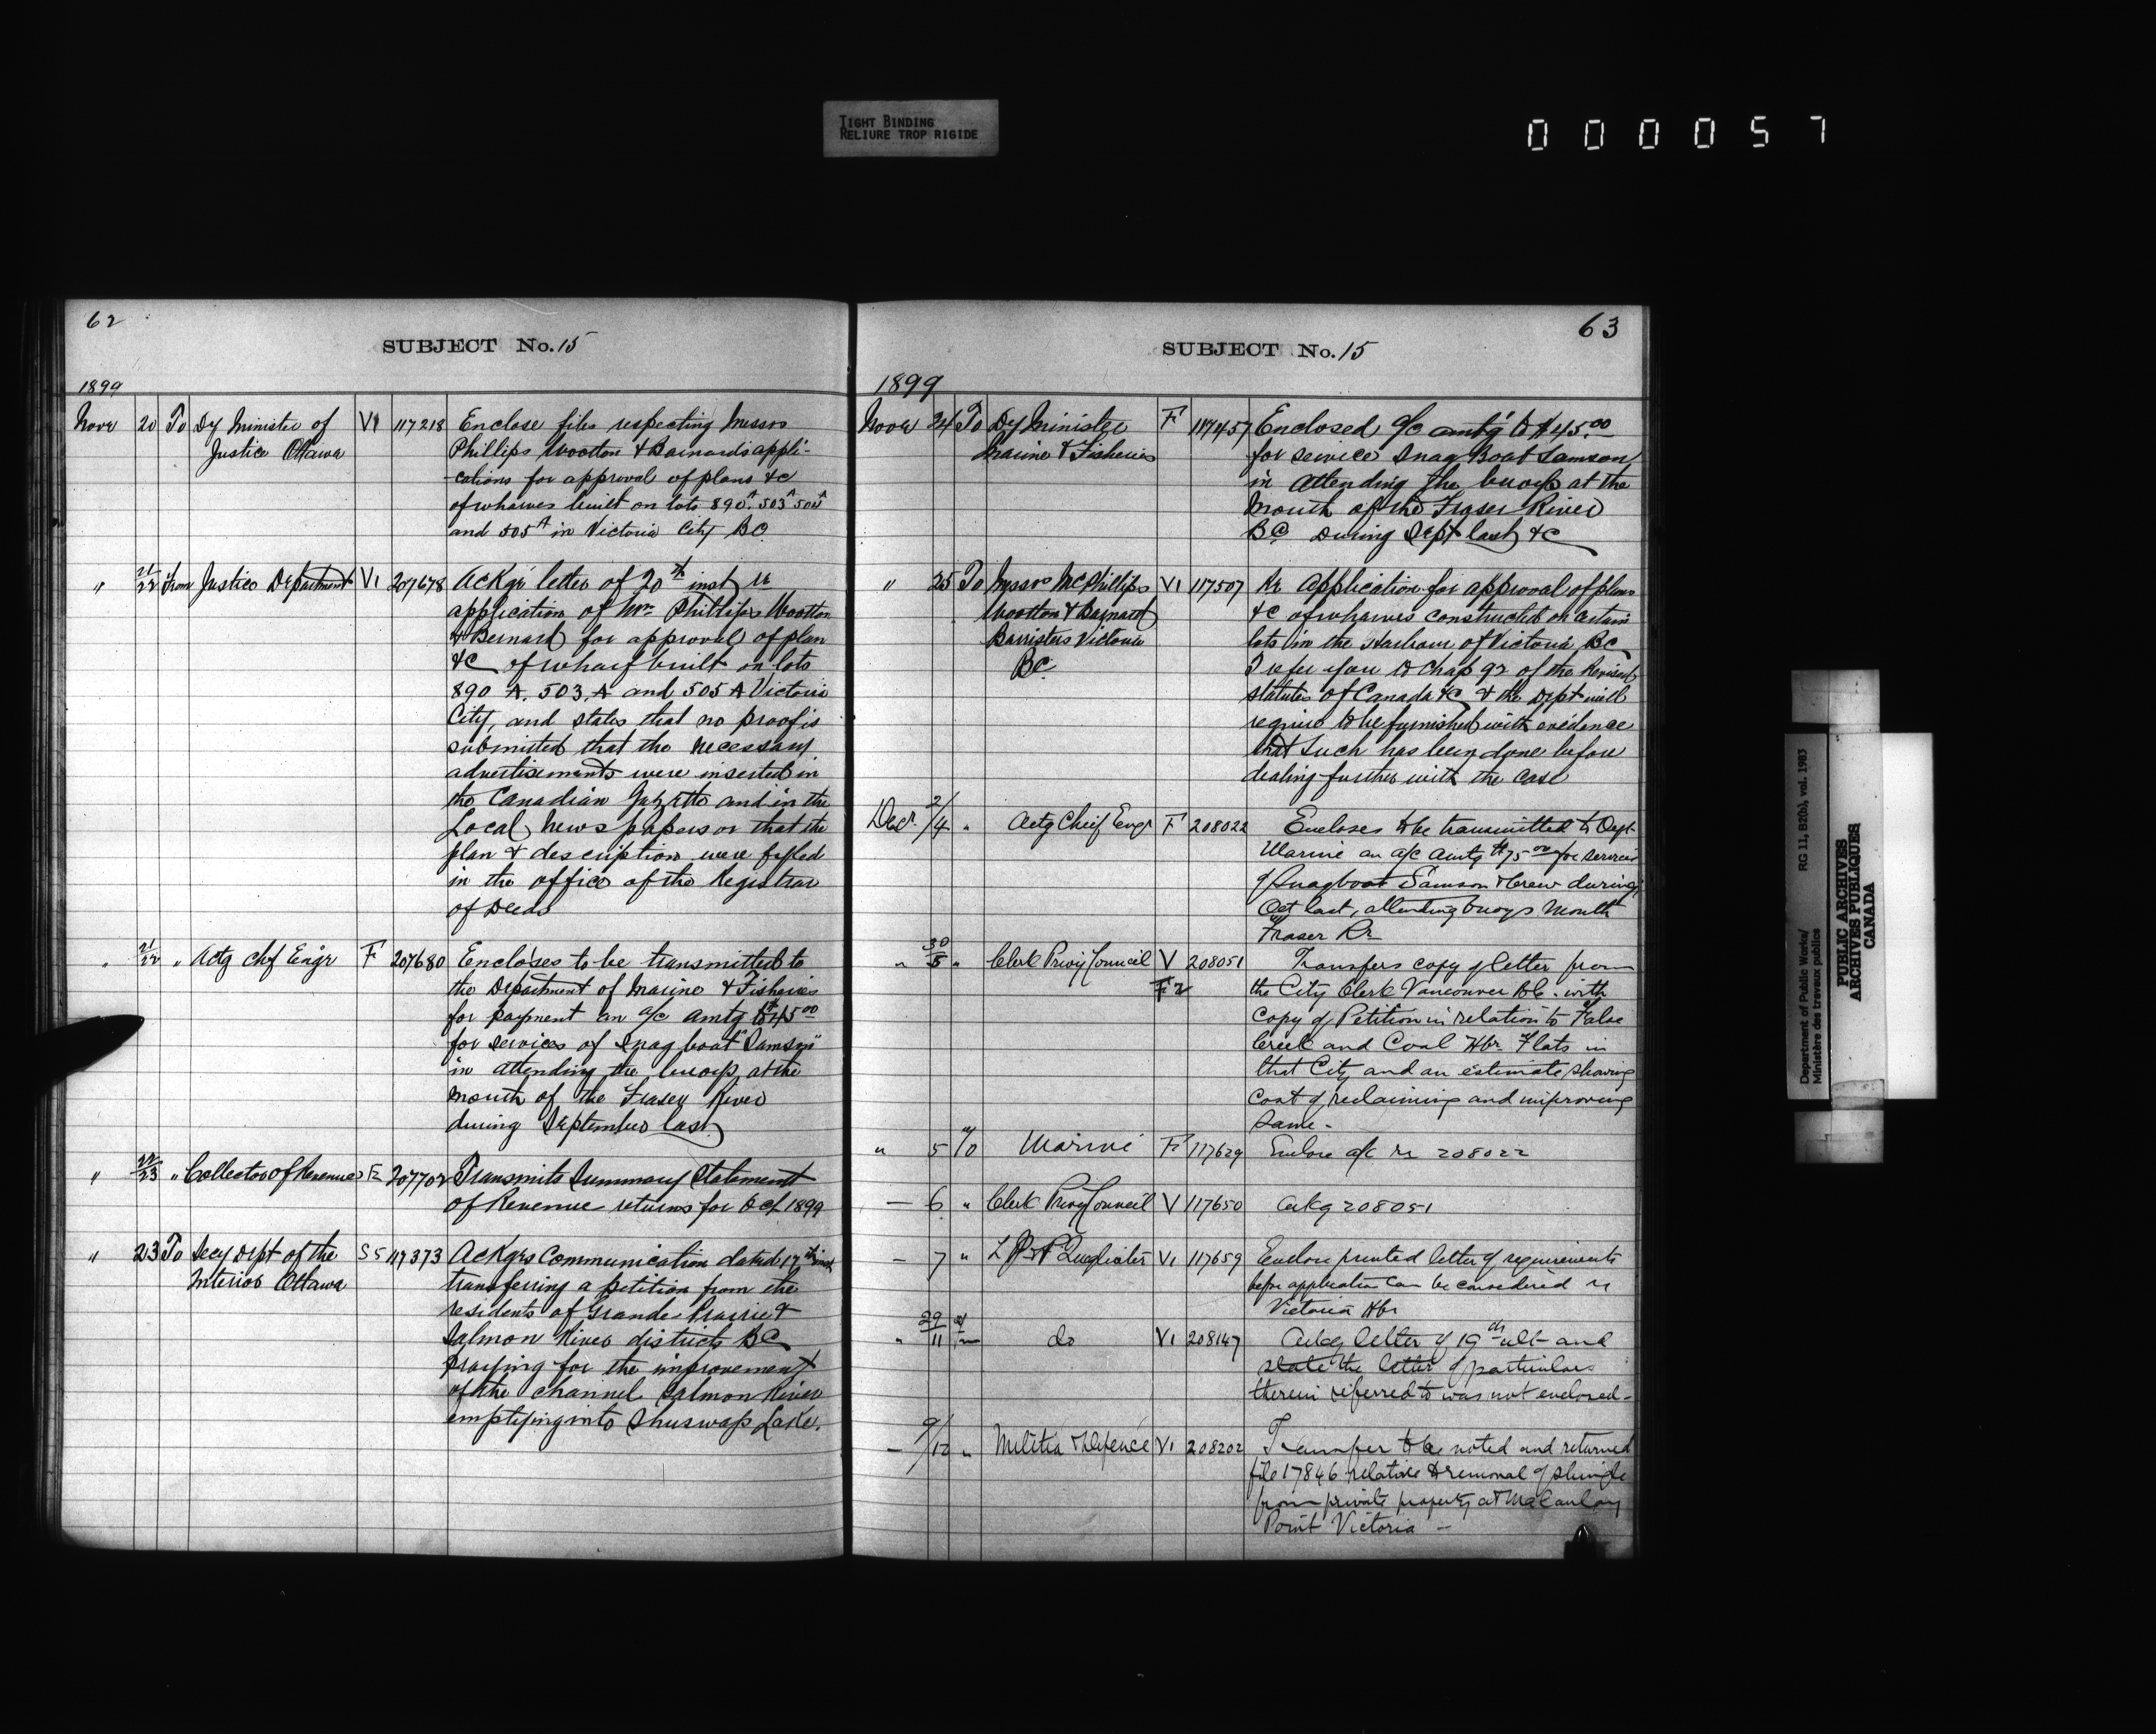 TIGHT BINDING
RELIURE TROP RIGIDE
000057
62
SUBJECT No. 15
1899
Novr 20 To Dy Minister of V1 117218 Enclose files respecting Messrs
Justice Ottawa Phillips Wootton & Barnards appli-
cations for approval of plans &c
of wharves built on lots 890A. 503A 504A
and 505A in Victoria City BC
" 21/22 From Justice Department V1 207678 Ackgs letter of 20th inst re
application of Mrs Phillips Wootton
& Bernard for approval of plan
&c of wharf built on lots
890 A. 503, A and 505 A Victoria
City, and states that no proof is
submitted that the necessary
advertisements were inserted in
the Canadian Gazette and in the
Local Newspapers or that the
plan & description were fyled
in the office of the Registrar
of Deeds
" 21/22 " Actg Chf Engr F 207680 Encloses to be transmitted to
the Department of Marine & Fisheries
for payment an a/c amtg to $45.00
for services of Snag boat "Samson"
in attending the buoys at the
mouth of the Fraser River
during September last
" 22/23 " Collector of Revenue F2 207702 Transmits Summary Statement
of Revenue returns for Oct 1899
" 23 To Secy Dept of the SS 117373 Ackgs Communication dated 17th inst
Interior Ottawa transferring a petition from the
residents of Grande Prairie &
Salmon River districts BC
praying for the improvement
of the channel Salmon River
emptying into Shuswap Lake.
63
SUBJECT No. 15
1899
Novr 24 To Dy Minister F 117457 Enclosed a/c amtg to $45.00
Marine & Fisheries for service Snag Boat Samson
in attending the buoys at the
Mouth of the Fraser River
BC During Sept last &c
" 25 To Messrs McPhillips V1 117507 Re Application for approval of plans
Wootton & Barnard &c of wharves constructed on certain
Barristers Victoria lots in the Harbour of Victoria BC
BC. I refer you to Chap 92 of the Revised
statutes of Canada &c & the Dept will
require to be furnished with evidence
that such has been done before
dealing further with the case
Decr 2/4 " Actg Chief Engr F 208022 Encloses to be transmitted to Dept
Marine an a/c amtg $75.00 for services
of Snagboat Samson & crew during
Oct last, attending buoys mouth
Fraser Rr
" 30/5 " Clerk Privy Council V 208051 Transfers copy of letter from
F2 the City Clerk Vancouver B.C. with
copy of Petition in relation to False
Creek and Coal Hbr Flats in
that City and an estimate showing
cost of reclaiming and improving
same -
" 5 To Marine F 117629 Enclose a/c re 208022
— 6 " Clerk Privy Council V 117650 ackg 208051
— 7 " V1 117659 Enclose printed letter of requirements
before application can be considered re
Victoria Hbr
" 29/11 do V1 208147 Ackg letter of 19th ult and
state the letter of particulars
therein referred to was not enclosed -
— 9/12 " Militia & Defence V1 208202 Transfer to be noted and returned
file 17846 relative to removal of shingle
from private property at Macaulay
Point Victoria —
Department of Public Works/ RG 11, B2(b), vol. 1983
Ministère des travaux publics
PUBLIC ARCHIVES
ARCHIVES PUBLIQUES
CANADA